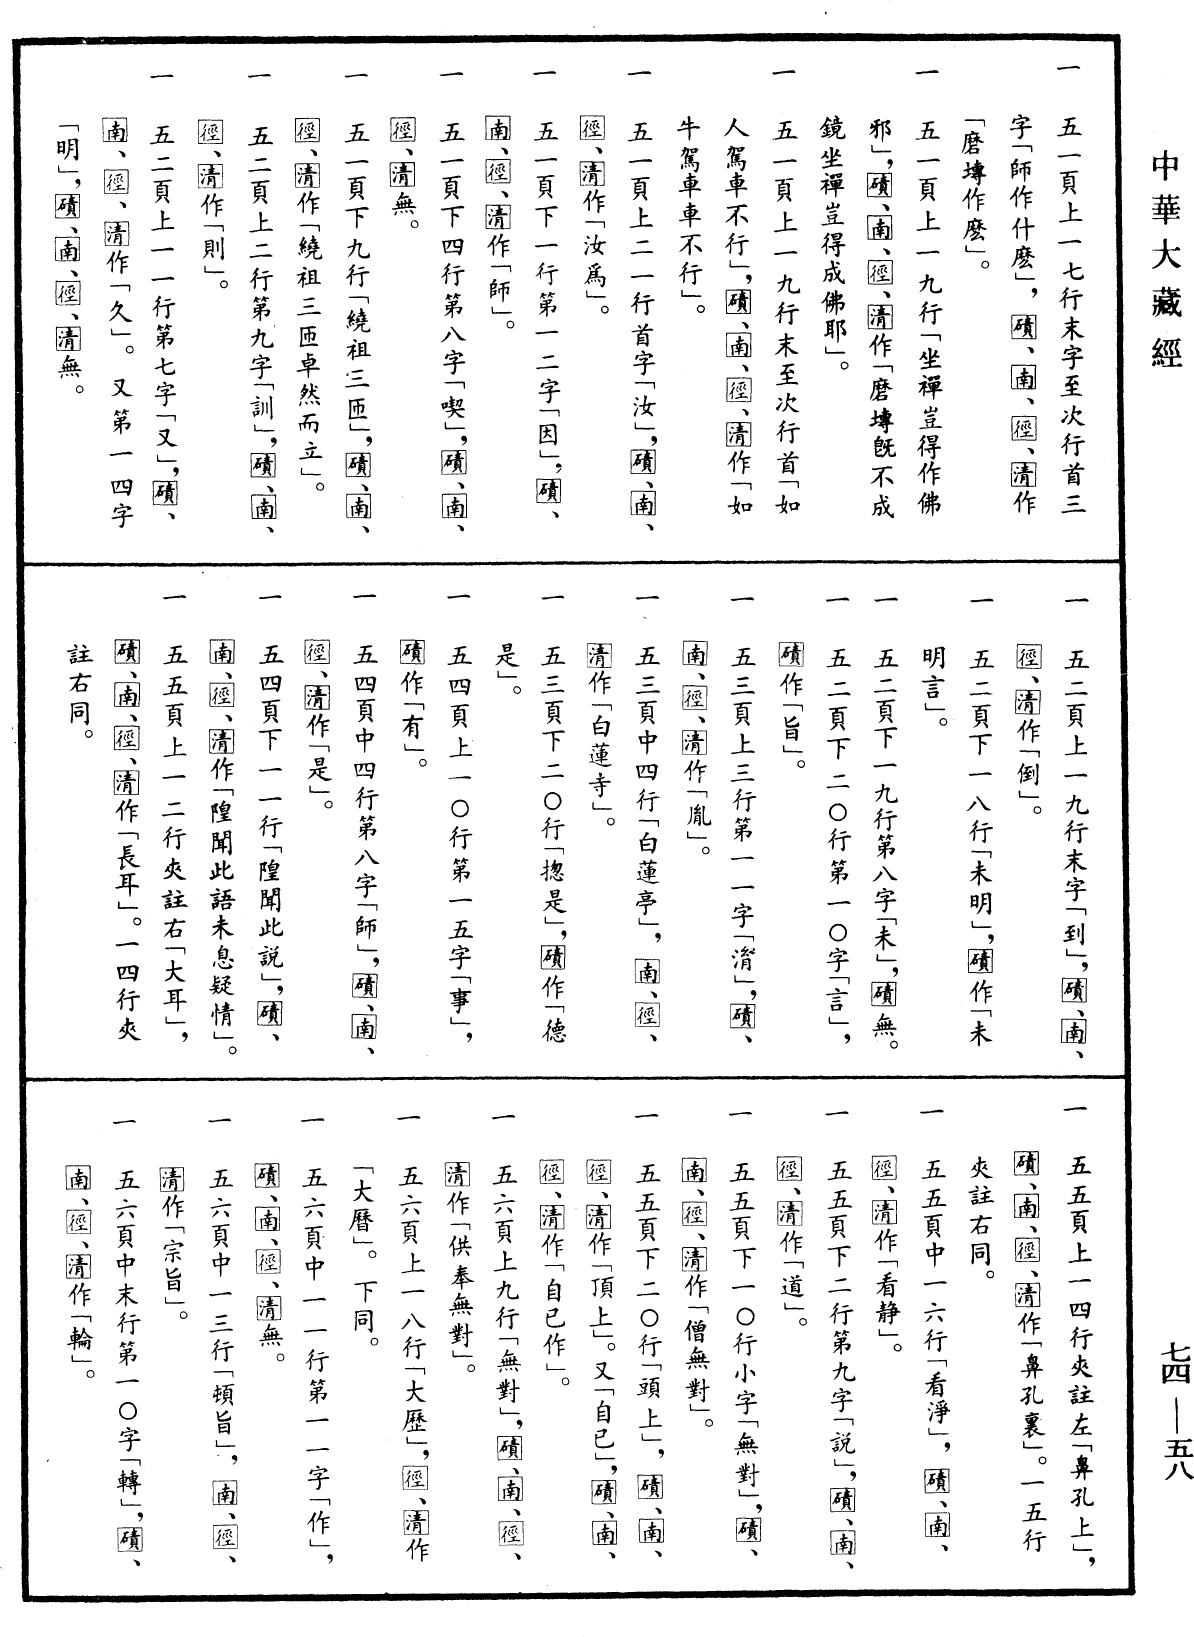 中華大藏經
一 五一頁上一七行末字至次行首三
字「師作什麽」，磧、南、徑、清作
「磨塼作麽」。
一 五一頁上一九行「坐禪豈得作佛
邪」，磧、南、徑、清作「磨塼既不成
鏡坐禪豈得成佛耶」。
一 五一頁上一九行末至次行首「如
人駕車不行」，磧、南、徑、清作「如
牛駕車車不行」。
一 五一頁上二一行首字「汝」，磧、南、
徑、清作「汝爲」。
一 五一頁下一行第一二字「因」，磧、
南、徑、清作「師」。
一 五一頁下四行第八字「喫」，磧、南、
徑、清無。
一 五一頁下九行「繞祖三匝」，磧、南、
徑、清作「繞祖三匝卓然而立」。
一 五二頁上二行第九字「訓」，磧、南、
徑、清作「則」。
一 五二頁上一一行第七字「又」，磧、
南、徑、清作「久」。又第一四字
「明」，磧、南、徑、清無。
一 五二頁上一九行末字「到」，磧、南、
徑、清作「倒」。
一 五二頁下一八行「未明」，磧作「未
明言」。
一 五二頁下一九行第八字「未」，磧無。
一 五二頁下二〇行第一〇字「言」，
磧作「旨」。
一 五三頁上三行第一一字「湑」，磧、
南、徑、清作「胤」。
一 五三頁中四行「白蓮亭」，南、徑、
清作「白蓮寺」。
一 五三頁下二〇行「揔是」，磧作「德
是」。
一 五四頁上一〇行第一五字「事」，
磧作「有」。
一 五四頁中四行第八字「師」，磧、南、
徑、清作「是」。
一 五四頁下一一行「隍聞此説」，磧、
南、徑、清作「隍聞此語未息疑情」。
一 五五頁上一二行夾註右「大耳」，
磧、南、徑、清作「長耳」。一四行夾
註右同。
一 五五頁上一四行夾註左「鼻孔上」，
磧、南、徑、清作「鼻孔裏」。一五行
夾註右同。
一 五五頁中一六行「看淨」，磧、南、
徑、清作「看静」。
一 五五頁下二行第九字「説」，磧、南、
徑、清作「道」。
一 五五頁下一〇行小字「無對」，磧、
南、徑、清作「僧無對」。
一 五五頁下二〇行「頭上」，磧、南、
徑、清作「頂上」。又「自已」，磧、南、
徑、清作「自已作」。
一 五六頁上九行「無對」，磧、南、徑、
清作「供奉無對」。
一 五六頁上一八行「大歷」，徑、清作
「大曆」。下同。
一 五六頁中一一行第一一字「作」，
磧、南、徑、清無。
一 五六頁中一三行「頓旨」，南、徑、
清作「宗旨」。
一 五六頁中末行第一〇字「轉」，磧、
南、徑、清作「輪」。
七四—五八